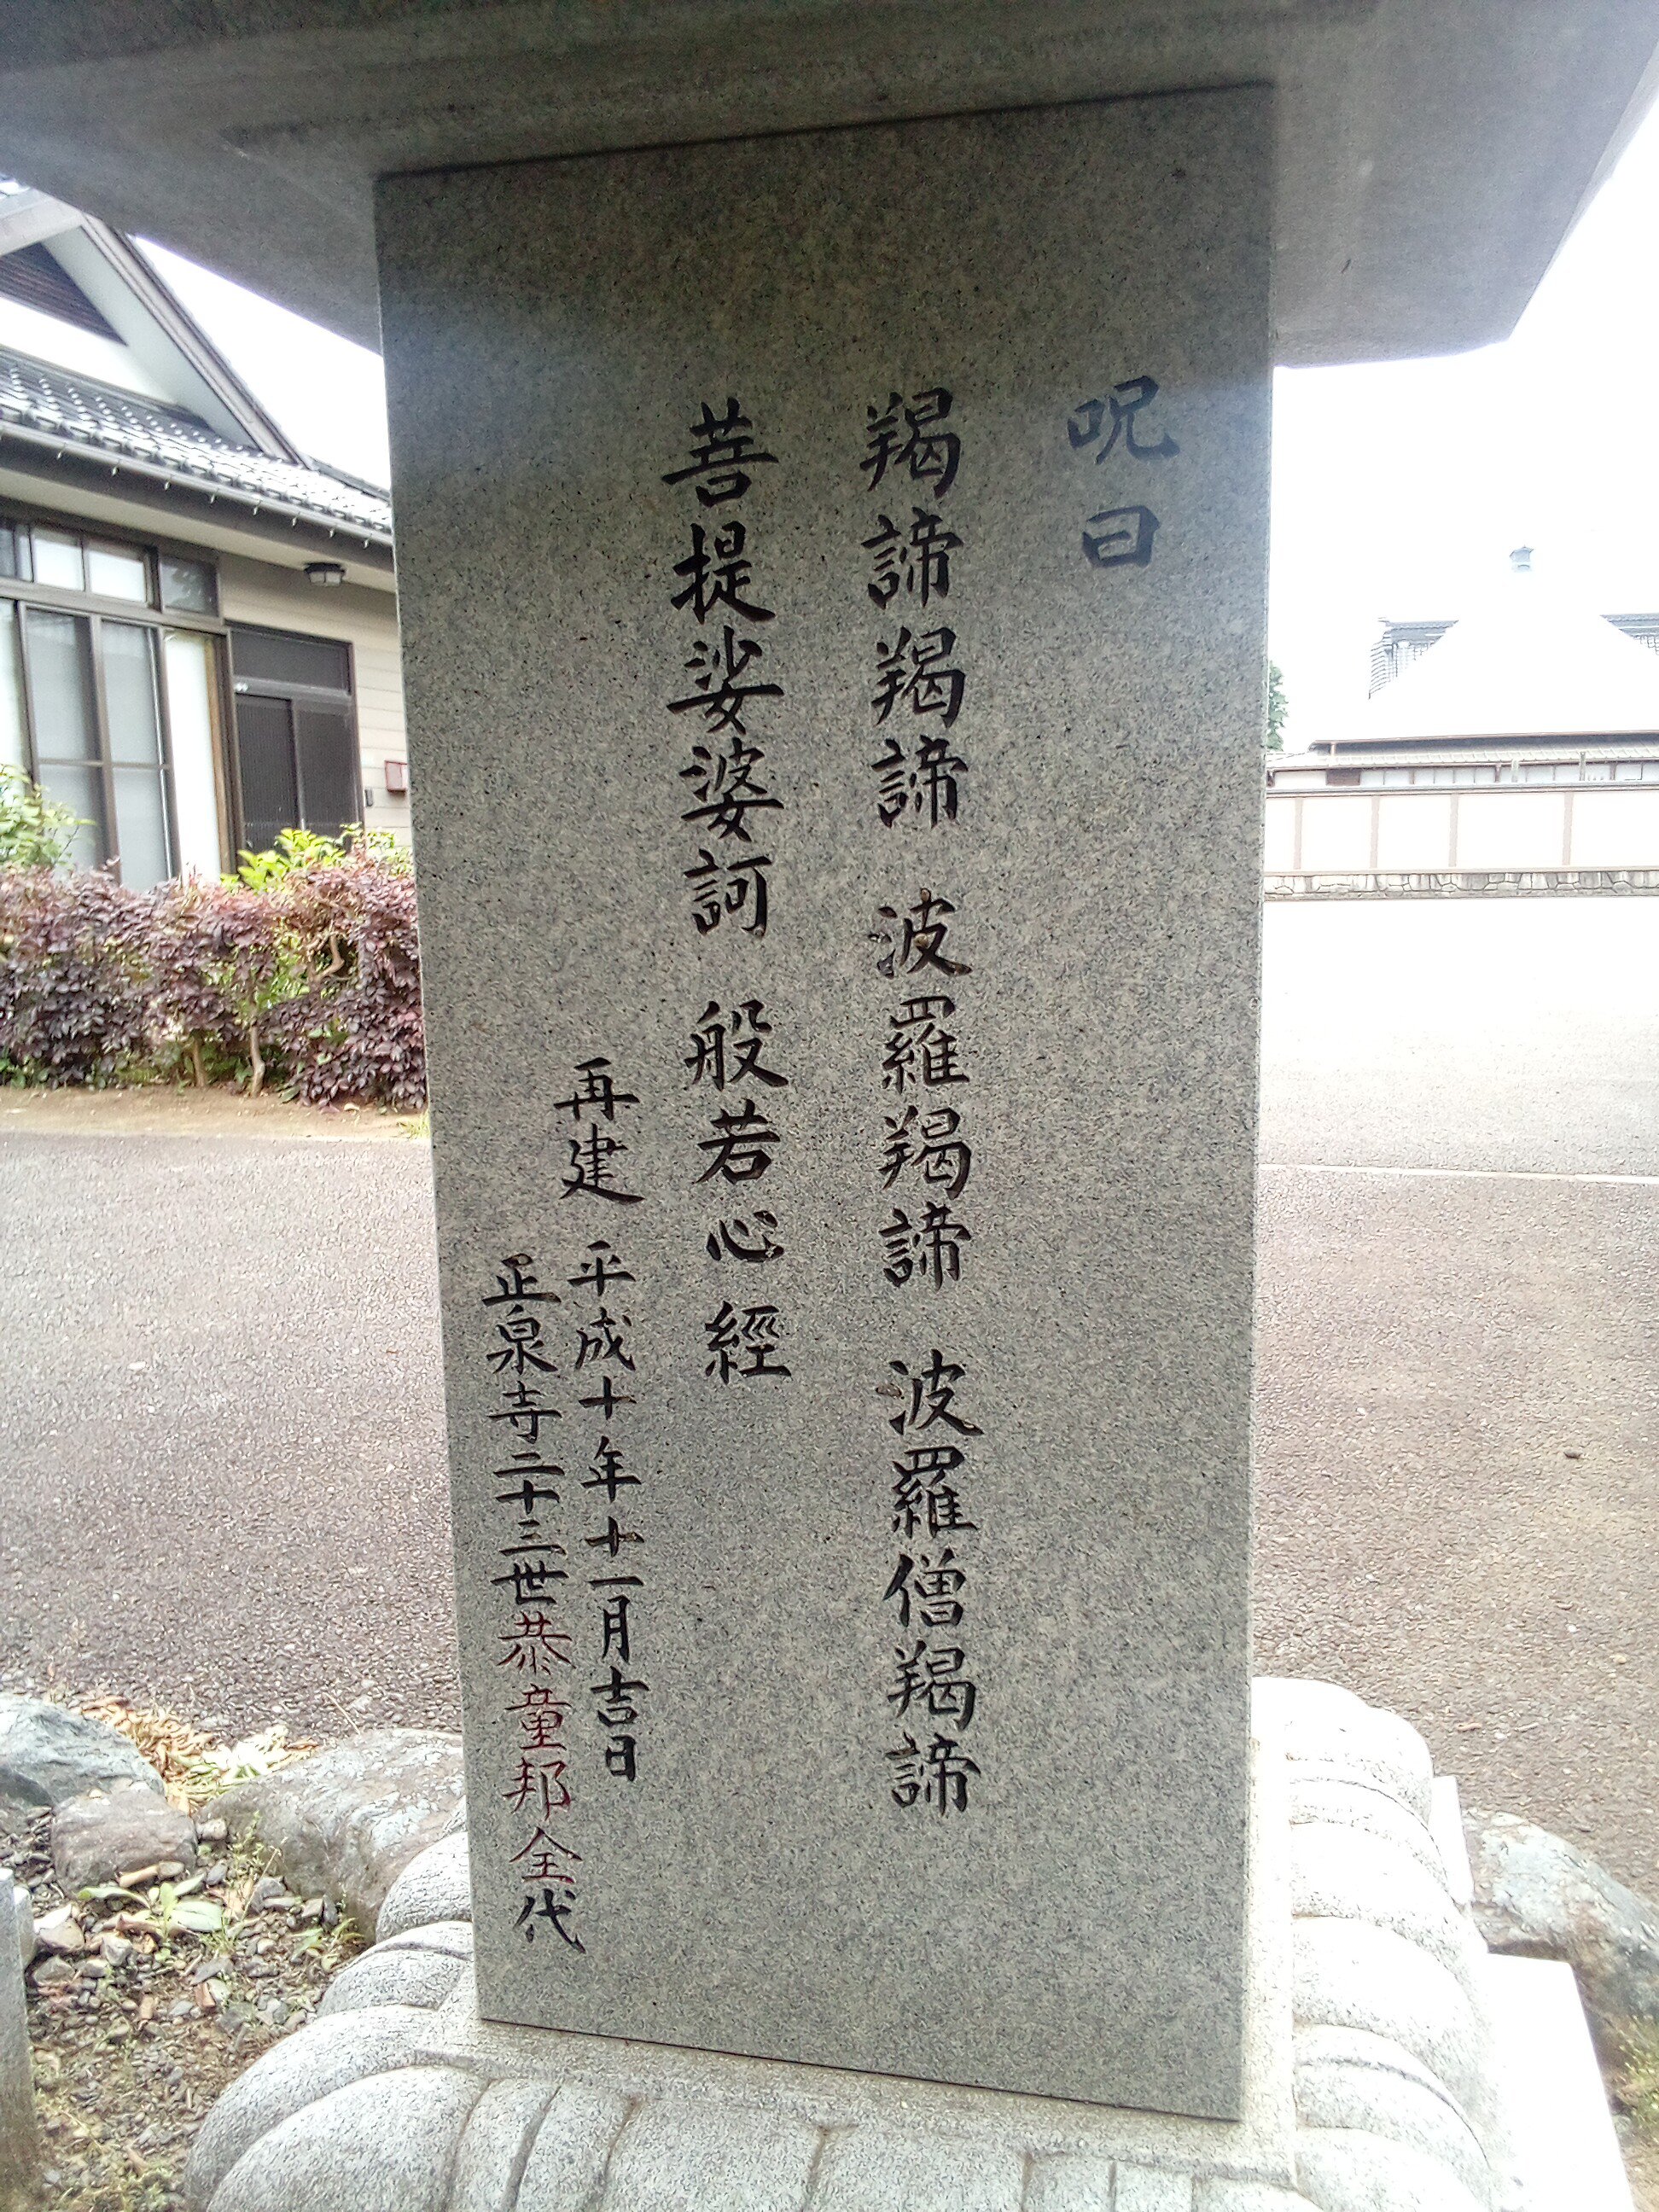 呪曰
羯諦羯諦 波羅羯諦 波羅僧羯諦
菩提娑婆訶 般若心經
再建 平成十年十一月吉日
正泉寺二十三世恭童邦全代